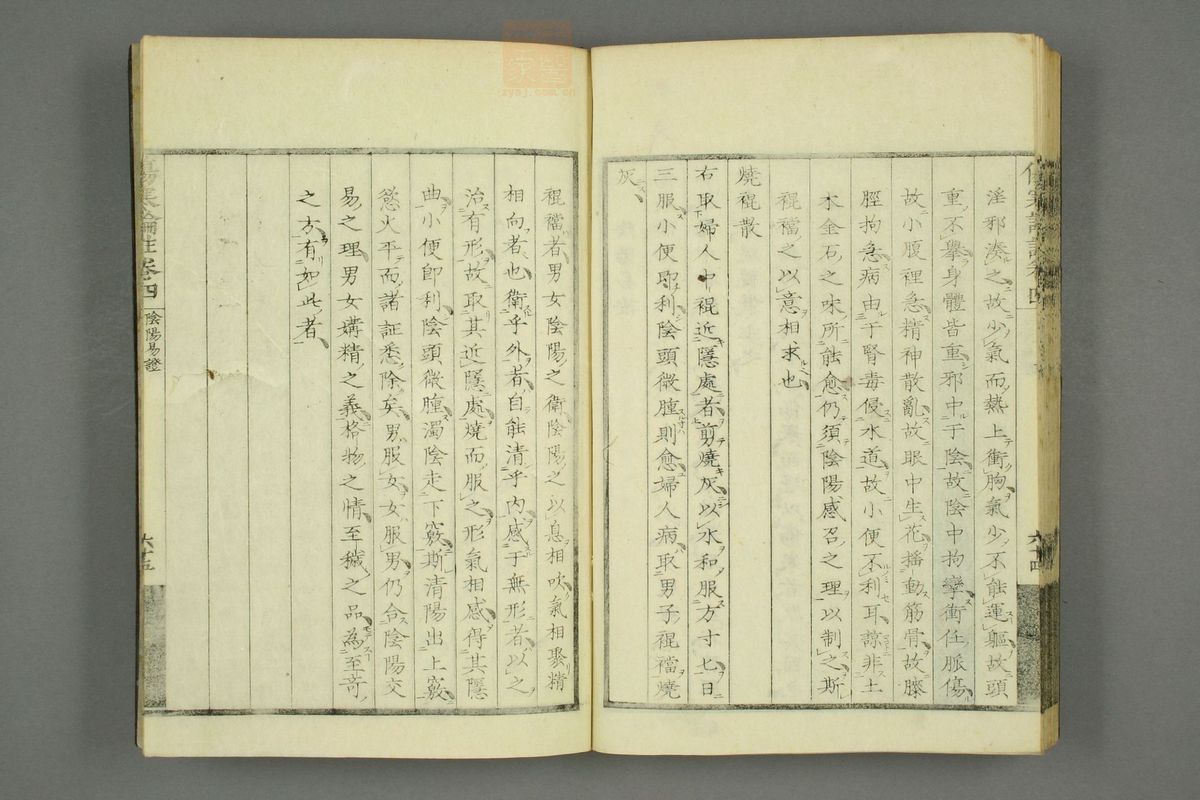 淫邪湊之故少氣而熱上衝胸氣少不能運軀故頭
重不擧身體皆重邪中于陰故陰中拘攣衝任脈傷
故小腹裡急精神散亂故眼中生花搖動筋骨故膝
脛拘急病由于腎毒侵水道故小便不利耳諒非土
木金石之味所能愈仍須陰陽感召之理以制之斯
裩襠之以意相求也
燒裩散
右取婦人中裩近隱處者剪燒灰以水和服方寸匕日
三服小便即利陰頭微腫則愈婦人病取男子裩襠燒
灰
裩襠者男女陰陽之衛陰陽之以息相吹氣相聚精
相向者也衛乎外者自能清乎内感于無形者以之
治有形故取其近隱處燒而服形氣相感得其隱
曲小便即利陰頭微腫濁陰走下竅斯清陽出上竅
慾火平而諸証悉除矣男服女女服男仍合陰陽交
易之理男女媾精之義格物之情至穢之品為至奇
之方有如此者
傷寒論註卷四 陰陽易證
zysj.com.cn